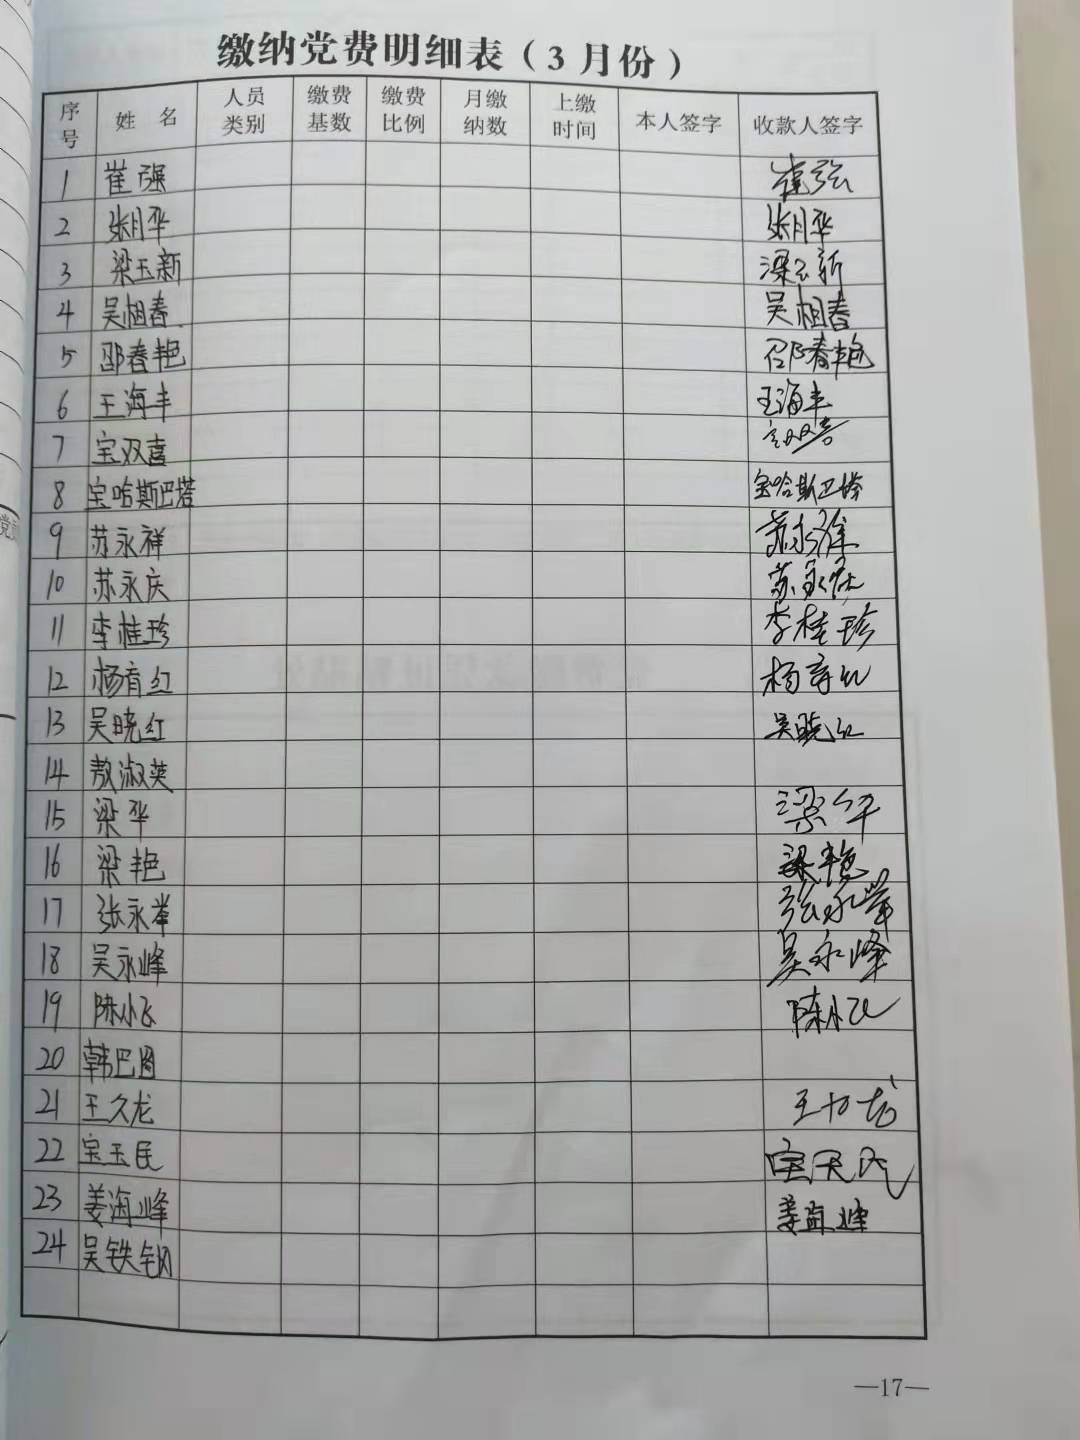 缴纳党费明细表（3月份）
序号 姓 名 人员类别 缴费基数 缴费比例 月缴纳数 上缴时间 本人签字 收款人签字
1 崔强 崔强
2 张月华 张月华
3 梁玉新 梁玉新
4 吴相春 吴相春
5 邵春艳 邵春艳
6 王海丰 王海丰
7 宝双喜 宝双喜
8 宝哈斯巴塔 宝哈斯巴塔
9 苏永祥 苏永祥
10 苏永庆 苏永庆
11 李桂珍 李桂珍
12 杨育红 杨育红
13 吴晓红 吴晓红
14 敖淑英
15 梁华 梁华
16 梁艳 梁艳
17 张永举 张永举
18 吴永峰 吴永峰
19 陈小飞 陈小飞
20 韩巴图
21 王久龙 王久龙
22 宝玉民 宝玉民
23 姜海峰 姜海峰
24 吴铁钢
—17—